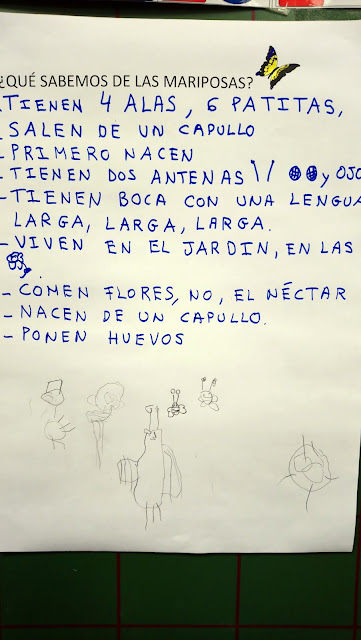 ¿QUÉ SABEMOS DE LAS MARIPOSAS?
TIENEN 4 ALAS, 6 PATITAS,
SALEN DE UN CAPULLO
- PRIMERO NACEN
- TIENEN DOS ANTENAS y OJO
- TIENEN BOCA CON UNA LENGUA
LARGA, LARGA, LARGA.
- VIVEN EN EL JARDIN, EN LAS
.
- COMEN FLORES, NO, EL NÉCTAR
- NACEN DE UN CAPULLO.
- PONEN HUEVOS